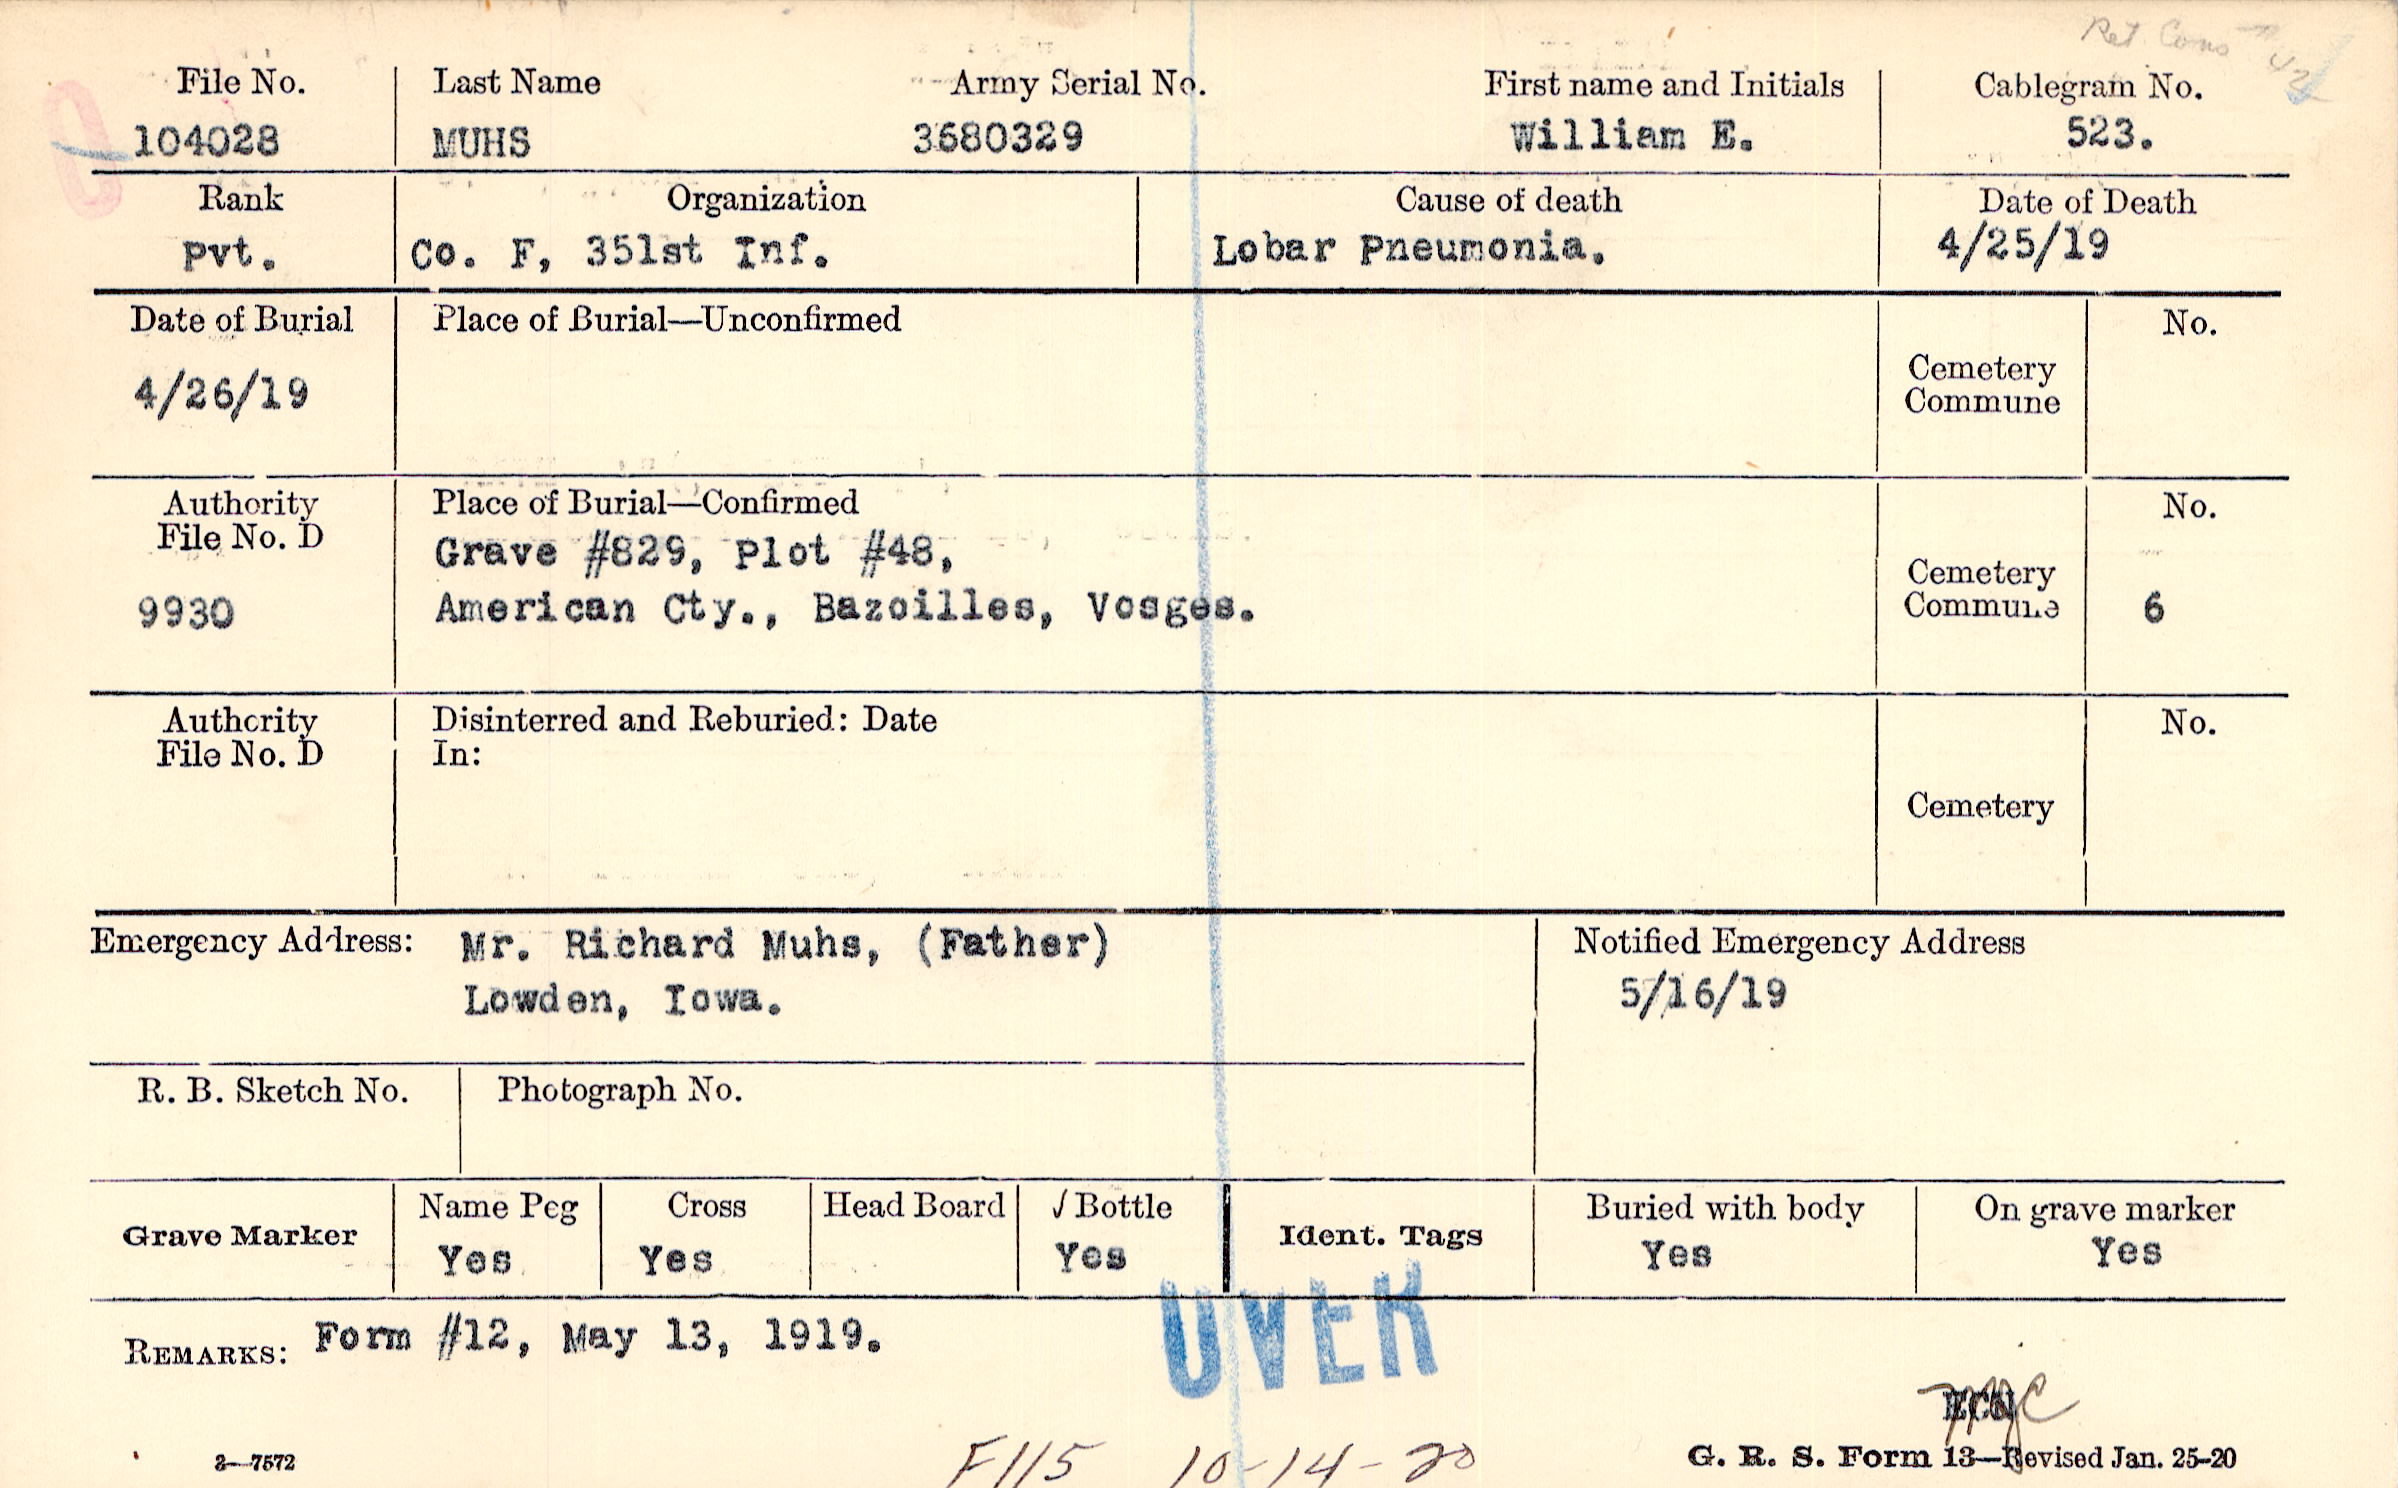 Ret Cons # 42
File No. Last Name Army Serial No. First name and Initials Cablegram No.
104028 MUHS 3680329 William E. 523.
Rank Organization Cause of death Date of Death
Pvt. Co. F, 351st Inf. Lobar Pneumonia. 4/25/19
Date of Burial Place of Burial—Unconfirmed No.
4/26/19 Cemetery
Commune
Authority Place of Burial—Confirmed No.
File No. D Grave #829, Plot #48, Cemetery
9930 American Cty., Bazoilles, Vosges. Commune 6
Authority Disinterred and Reburied: Date No.
File No. D In:
Cemetery
Emergency Address: Mr. Richard Muhs, (Father) Notified Emergency Address
Lowden, Iowa. 5/16/19
R. B. Sketch No. Photograph No.
Grave Marker Name Peg Cross Head Board √ Bottle Ident. Tags Buried with body On grave marker
Yes Yes Yes Yes Yes
REMARKS: Form #12, May 13, 1919.
OVER
3—7572 F115 10-14-20 G. R. S. Form 13—Revised Jan. 25-20